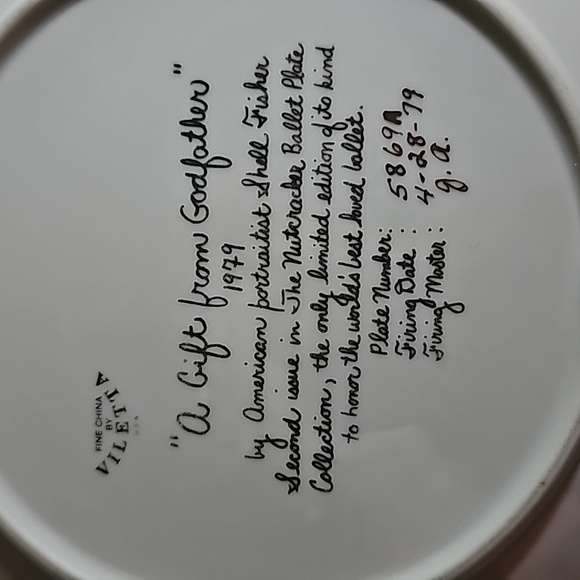 FINE CHINA
BY
VILETTA
U.S.A.
"A Gift from Godfather"
1979
by American portraitist Shell Fisher
Second issue in The Nutcracker Ballet Plate
Collection, the only limited edition of its kind
to honor the world's best loved ballet.
Plate Number: 5869A
Firing Date : 4-28-79
Firing Master: g.a.